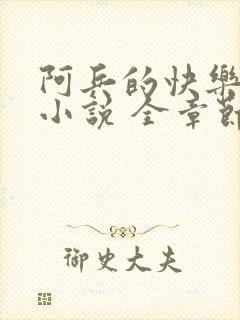 阿兵的快樂
小說 全章節
御史大夫